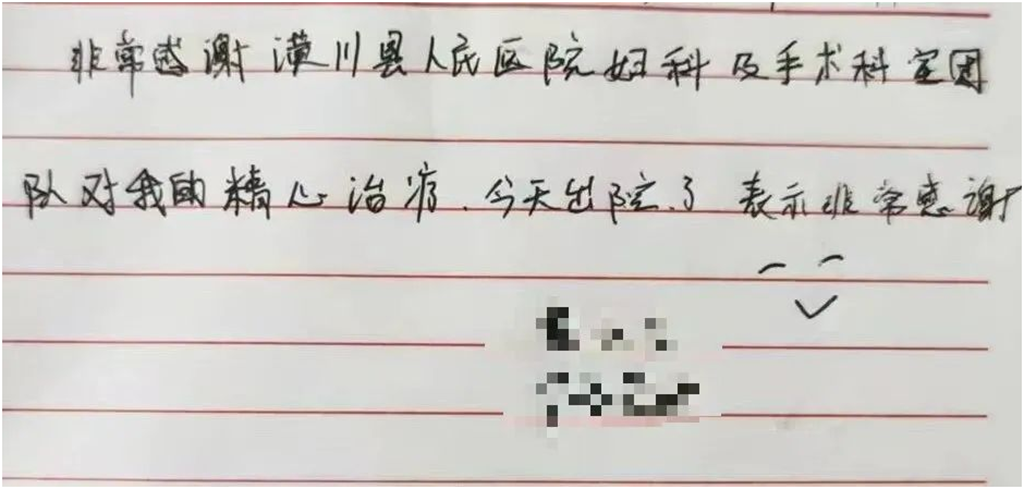 非常感谢潢川县人民医院妇科及手术科室团
队对我的精心治疗.今天出院了 表示非常感谢